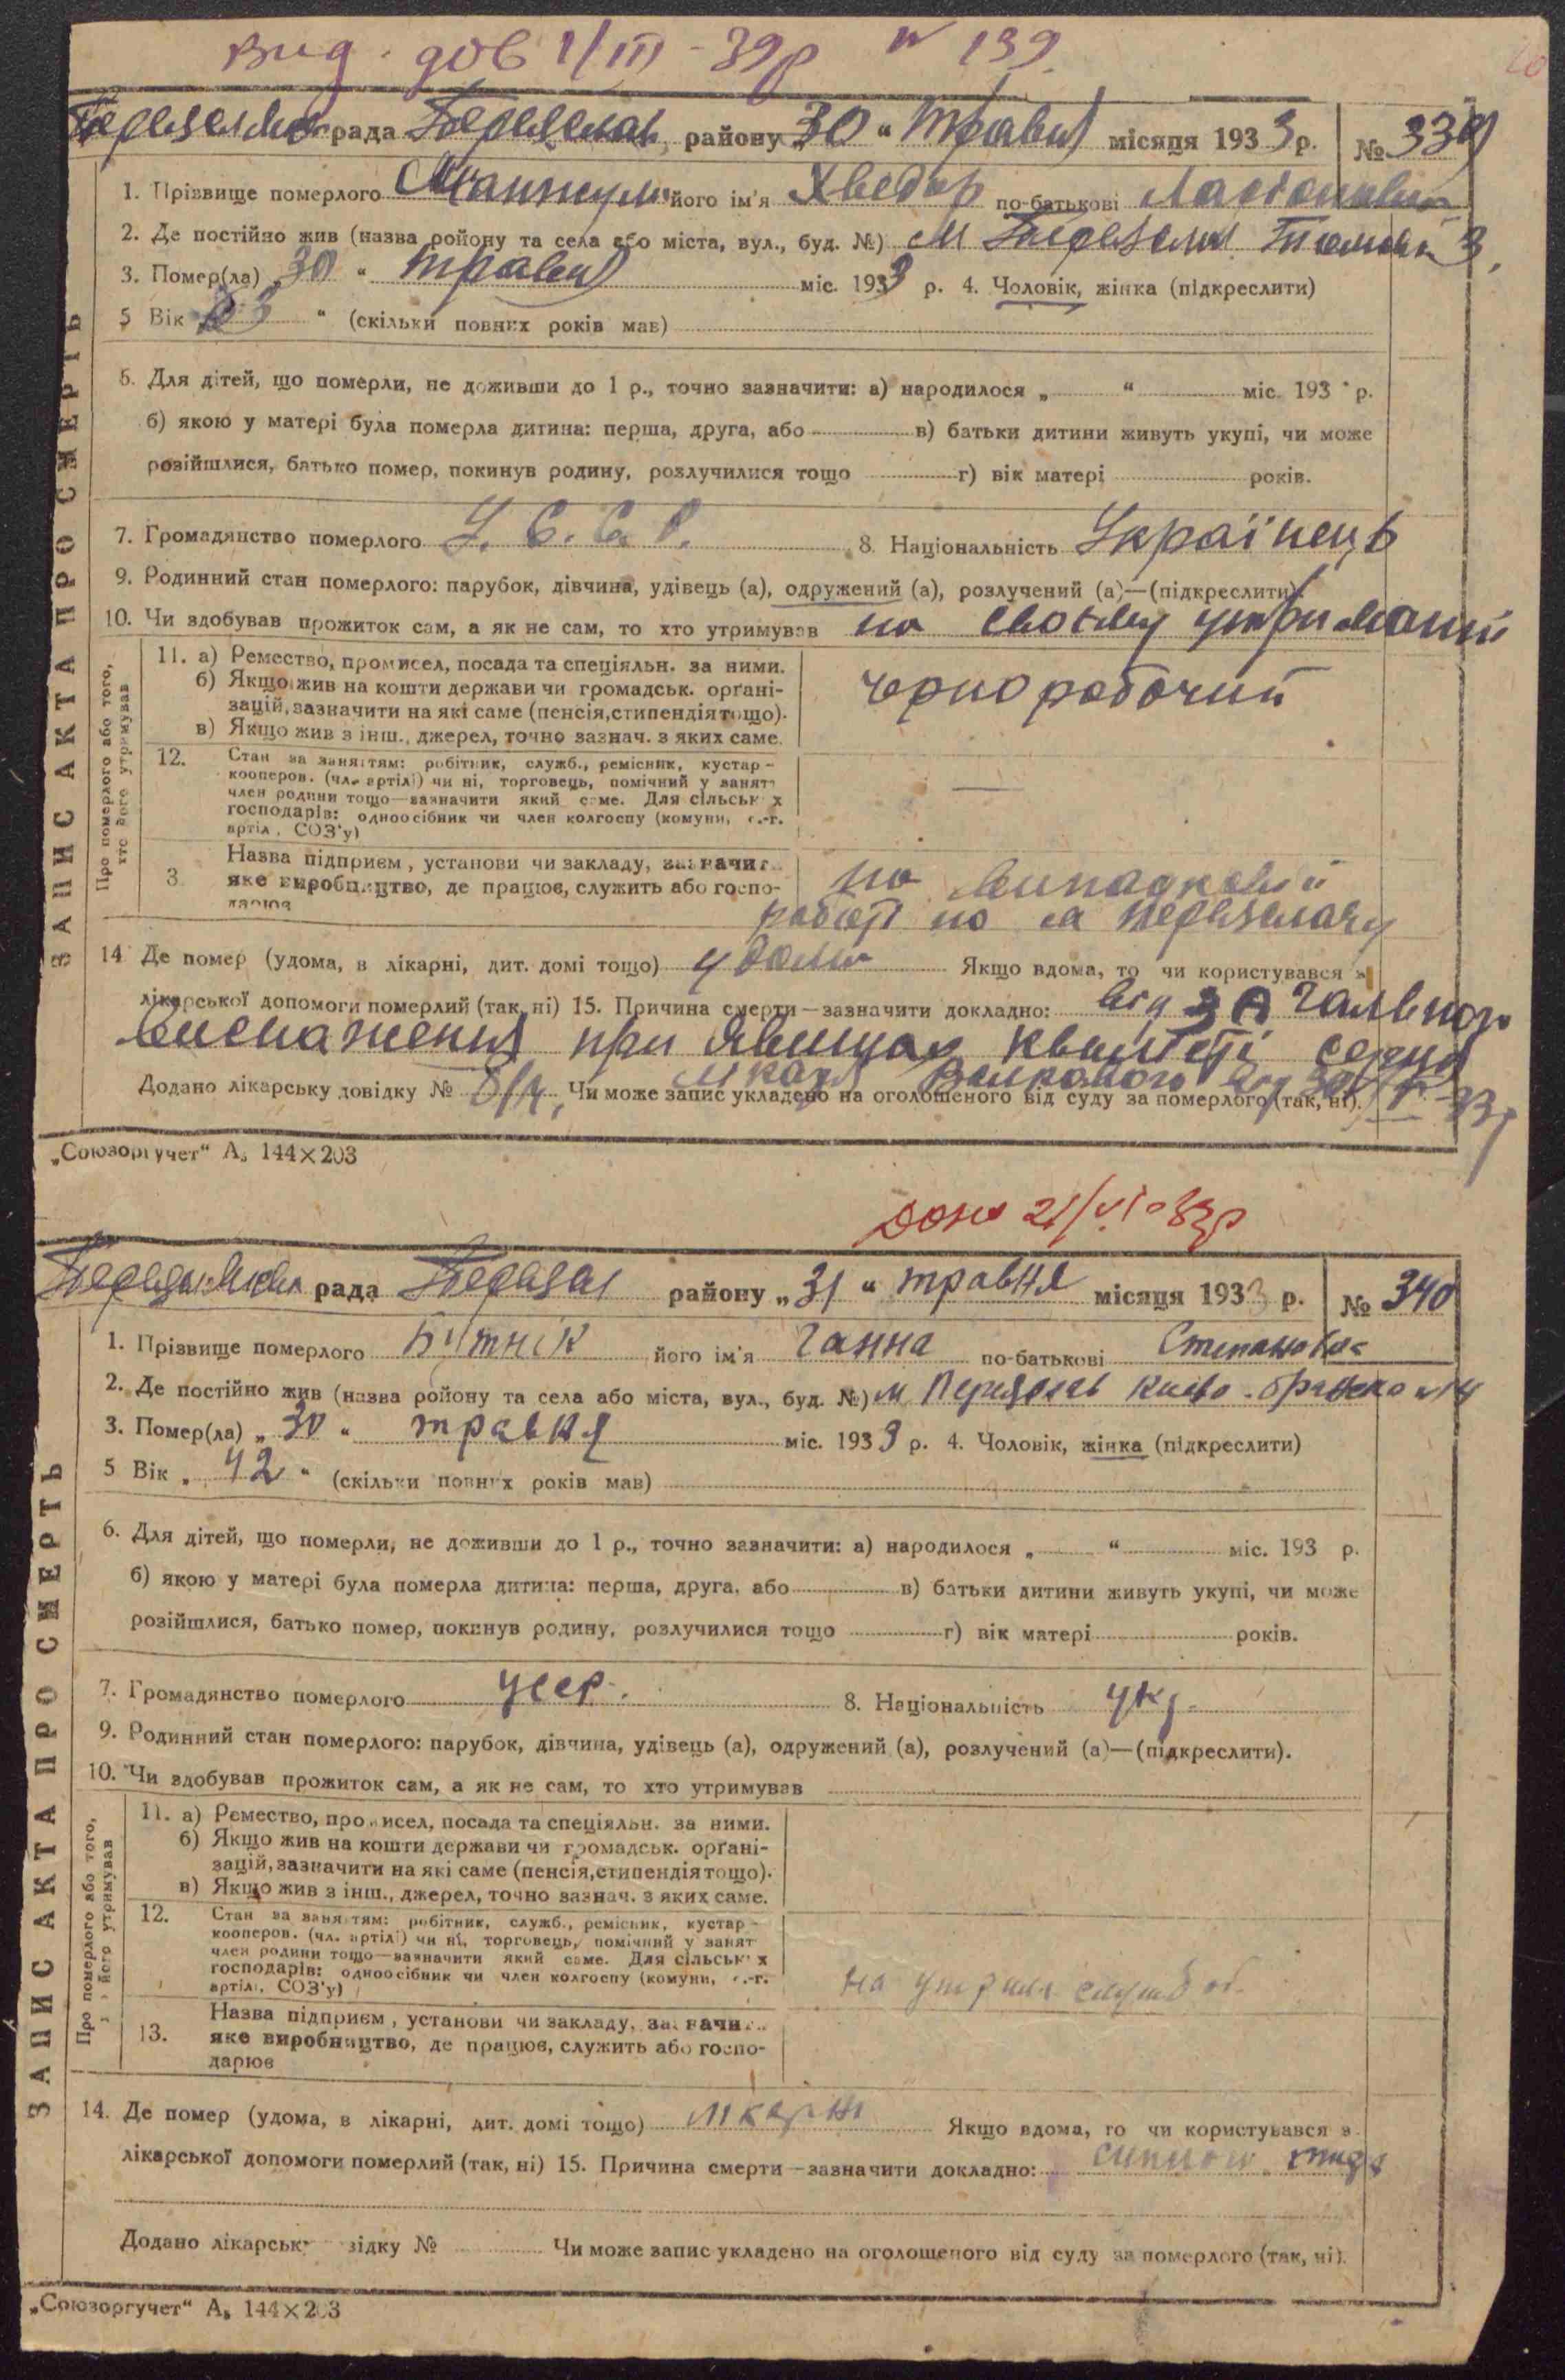 Вид. дов 1/III-39р № 139
рада Переяслав. району „30“ Травня місяця 1933 р. № 339
ЗАПИС АКТА ПРО СМЕРТЬ
1. Прізвище померлого його ім'я Хведір по-батькові
2. Де постійно жив (назва району та села або міста, вул., буд. №) м 3.
3. Помер(ла) „30“ травня міс. 1933 р. 4. Чоловік, жінка (підкреслити)
5 Вік “ (скільки повних років мав)
6. Для дітей, що померли, не доживши до 1 р., точно зазначити: а) народилося „ “ міс. 193 р.
б) якою у матері була померла дитина: перша, друга, або в) батьки дитини живуть укупі, чи може
розійшлися, батько помер, покинув родину, розлучилися тощо г) вік матері років.
7. Громадянство померлого У. С. С. Р. 8. Національність Українець
9. Родинний стан померлого: парубок, дівчина, удівець (а), одружений (а), розлучений (а)—(підкреслити).
10. Чи здобував прожиток сам, а як не сам, то хто утримував на своєму утриманні
Про померлого або того, хто його утримував
11. а) Ремество, промисел, посада та спеціяльн. за ними.
б) Якщо жив на кошти держави чи громадськ. органі-
зацій, зазначити на які саме (пенсія, стипендія тощо).
в) Якщо жив з інш., джерел, точно зазнач. з яких саме.
чорноробочий
12. Стан за заняттям: робітник, служб., ремісник, кустар-
кооперов. (чл. артілі) чи ні, торговець, помічний у занят
член родини тощо—зазначити який саме. Для сільськ х
господарів: одноосібник чи член колгоспу (комуни, с.-г.
артіл, СОЗ'у)
—
3 Назва підприєм, установи чи закладу, зазначит
яке виробництво, де працює, служить або госпо-
дарює
на випадковій
роботі по м Переяславу
14 Де помер (удома, в лікарні, дит. домі тощо) удома Якщо вдома, то чи користувався з
лікарської допомоги померлий (так, ні) 15. Причина смерти—зазначити докладно: від загального
виснаження при явищах серця
Додано лікарську довідку № б/н, Чи може запис укладено на оголошеного від суду за померлого (так, ні).
„Союзоргучет“ А₅ 144×203
21/VI-33р
рада Переяслав району „31“ травня місяця 1933 р. № 340
ЗАПИС АКТА ПРО СМЕРТЬ
1. Прізвище померлого Бутнік його ім'я Ганна по-батькові Степановна
2. Де постійно жив (назва району та села або міста, вул., буд. №) м Переяслав Києво-
3. Помер(ла) „30“ травня міс. 1933 р. 4. Чоловік, жінка (підкреслити)
5 Вік „42“ (скільки повних років мав)
6. Для дітей, що померли, не доживши до 1 р., точно зазначити: а) народилося „ “ міс. 193 р.
б) якою у матері була померла дитина: перша, друга, або в) батьки дитини живуть укупі, чи може
розійшлися, батько помер, покинув родину, розлучилися тощо г) вік матері років.
7. Громадянство померлого УССР. 8. Національність укр.
9. Родинний стан померлого: парубок, дівчина, удівець (а), одружений (а), розлучений (а)—(підкреслити).
10. Чи здобував прожиток сам, а як не сам, то хто утримував
Про померлого або того, його утримував
11. а) Ремество, промисел, посада та спеціяльн. за ними.
б) Якщо жив на кошти держави чи громадськ. органі-
зацій, зазначити на які саме (пенсія, стипендія тощо).
в) Якщо жив з інш., джерел, точно зазнач. з яких саме.
12. Стан за заняттям: робітник, служб., ремісник, кустар-
кооперов. (чл. артілі) чи ні, торговець, помічний у занят
член родини тощо—зазначити який саме. Для сільськ х
господарів: одноосібник чи член колгоспу (комуни, с.-г.
артілі, СОЗ'у)
на утриман службов.
13. Назва підприєм, установи чи закладу, зазначи
яке виробництво, де працює, служить або госпо-
дарює
14. Де помер (удома, в лікарні, дит. домі тощо) лікарні Якщо вдома, то чи користувався з
лікарської допомоги померлий (так, ні) 15. Причина смерти—зазначити докладно: сипной тиф
Додано лікарськ відку № Чи може запис укладено на оголошеного від суду за померлого (так, ні).
„Союзоргучет“ А₅ 144×203